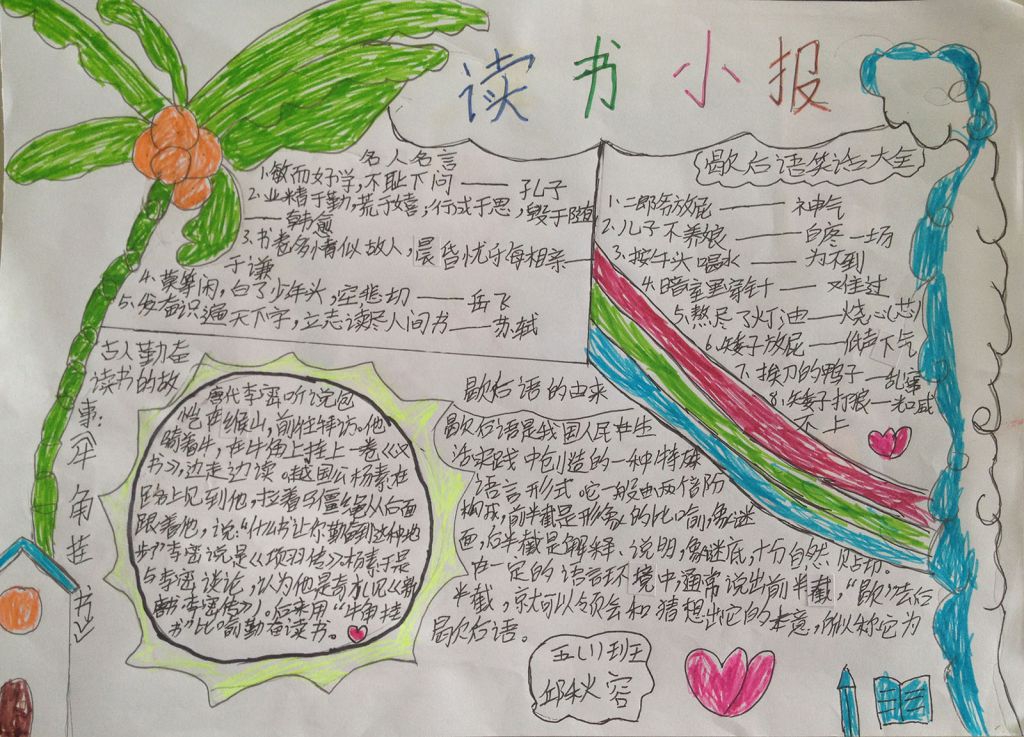 读书小报
名人名言
1.敏而好学,不耻下问——孔子
2.业精于勤,荒于嬉;行成于思,毁于随
——韩愈
3.书卷多情似故人,晨昏忧乐每相亲—
于谦
4.莫等闲,白了少年头,空悲切——岳飞
5.发奋识遍天下字,立志读尽人间书——苏轼
歇后语笑话大全
1.二郎爷放屁——神气
2.儿子不养娘——白疼一场
3.按牛头喝水——办不到
4.暗室里穿针——难过
5.熬尽了灯油——烧心(芯)
6.矮子放屁——低声下气
7.挨刀的鸭子—乱窜
8.矮子打狼—光喊
不上
古人勤奋
读书的故
事:《牛角挂书》
唐代李密听说包
恺在缑山,前往拜访。他
骑着牛,在牛角上挂上一卷《汉
书》,边走边读。越国公杨素在
路上见到他,拉着马缰绳从后面
跟着他,说:“什么书让你勤奋到这种地
步?”李密说是《项羽传》。杨素于是
与李密谈论,认为他是奇才,见《新
唐书·李密传》)。后来用“牛角挂
书”比喻勤奋读书。
歇后语的由来
歇后语是我国人民在生
活实践中创造的一种特殊
语言形式 它一般由两個阶
构成,前半截是形象的比喻,象谜
面,后半截是解释、说明,象谜底,十分自然、贴切。
在一定的语言环境中,通常说出前半截,“歇”去后
半截,就可以领会和猜想出它的本意,所以称它为
歇后语。
五(1)班
邱秋容